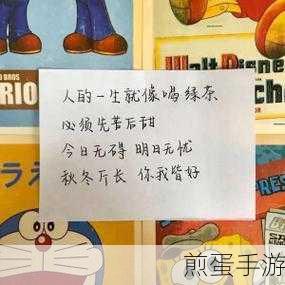 BROS
RIO
Walt Disney
人的一生就像喝绿茶
必须先苦后甜
今日无碍 明日无忧
秋冬斤长 你我皆好
ラえ
煎蛋手游